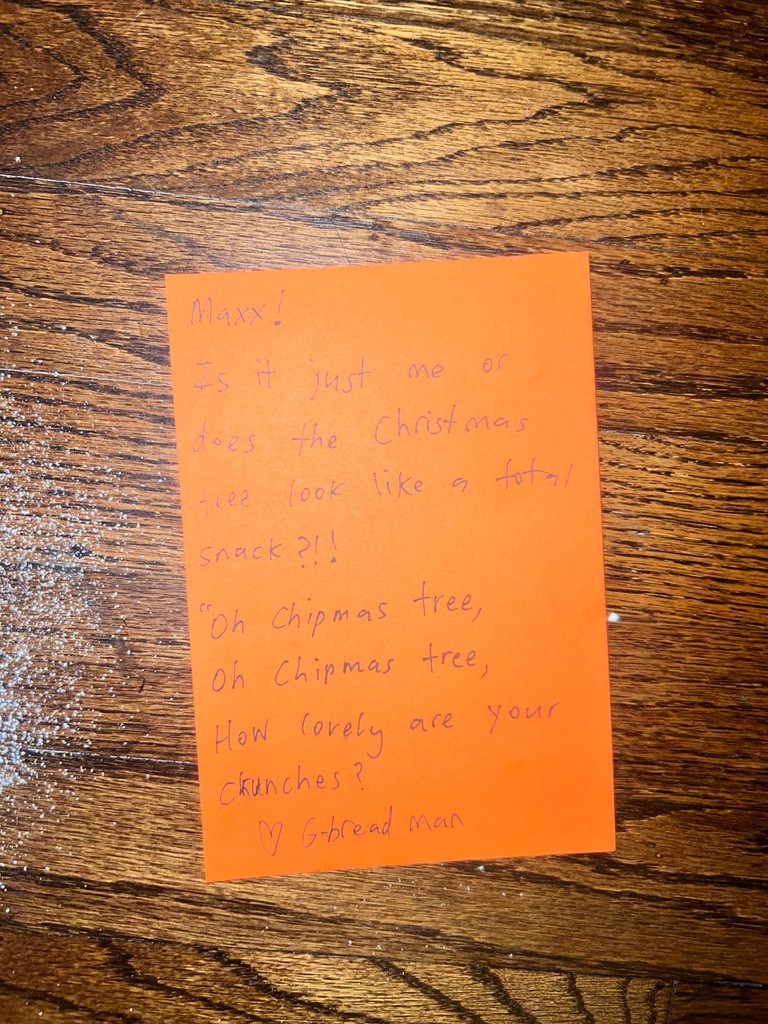 Maxx!
Is it just me or
does the Christmas
tree look like a total
snack?!!
"Oh Chipmas tree,
Oh Chipmas tree,
How lovely are your
crunches?
♡ G-bread man